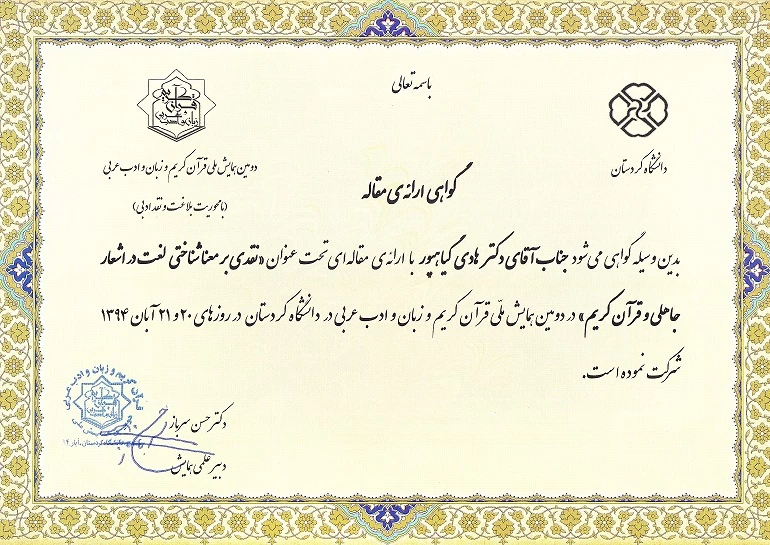 باسمه تعالی
دانشگاه کردستان
قرآن کریم
زبان و ادب عربی
دومین همایش ملی قرآن کریم و زبان و ادب عربی
(با محوریت بلاغت و نقد ادبی)
گواهی ارائه‌ی مقاله
بدین وسیله گواهی می‌شود جناب آقای دکتر هادی گیاهپور با ارائه‌ی مقاله‌ای تحت عنوان «نقدی بر معناشناختی لغت در اشعار
جاهلی و قرآن کریم» در دومین همایش ملّی قرآن کریم و زبان و ادب عربی در دانشگاه کردستان در روزهای ۲۰ و ۲۱ آبان ۱۳۹۴
شرکت نموده است.
دکتر حسن سرباز
دبیر علمی همایش
قرآن کریم و زبان و ادب عربی